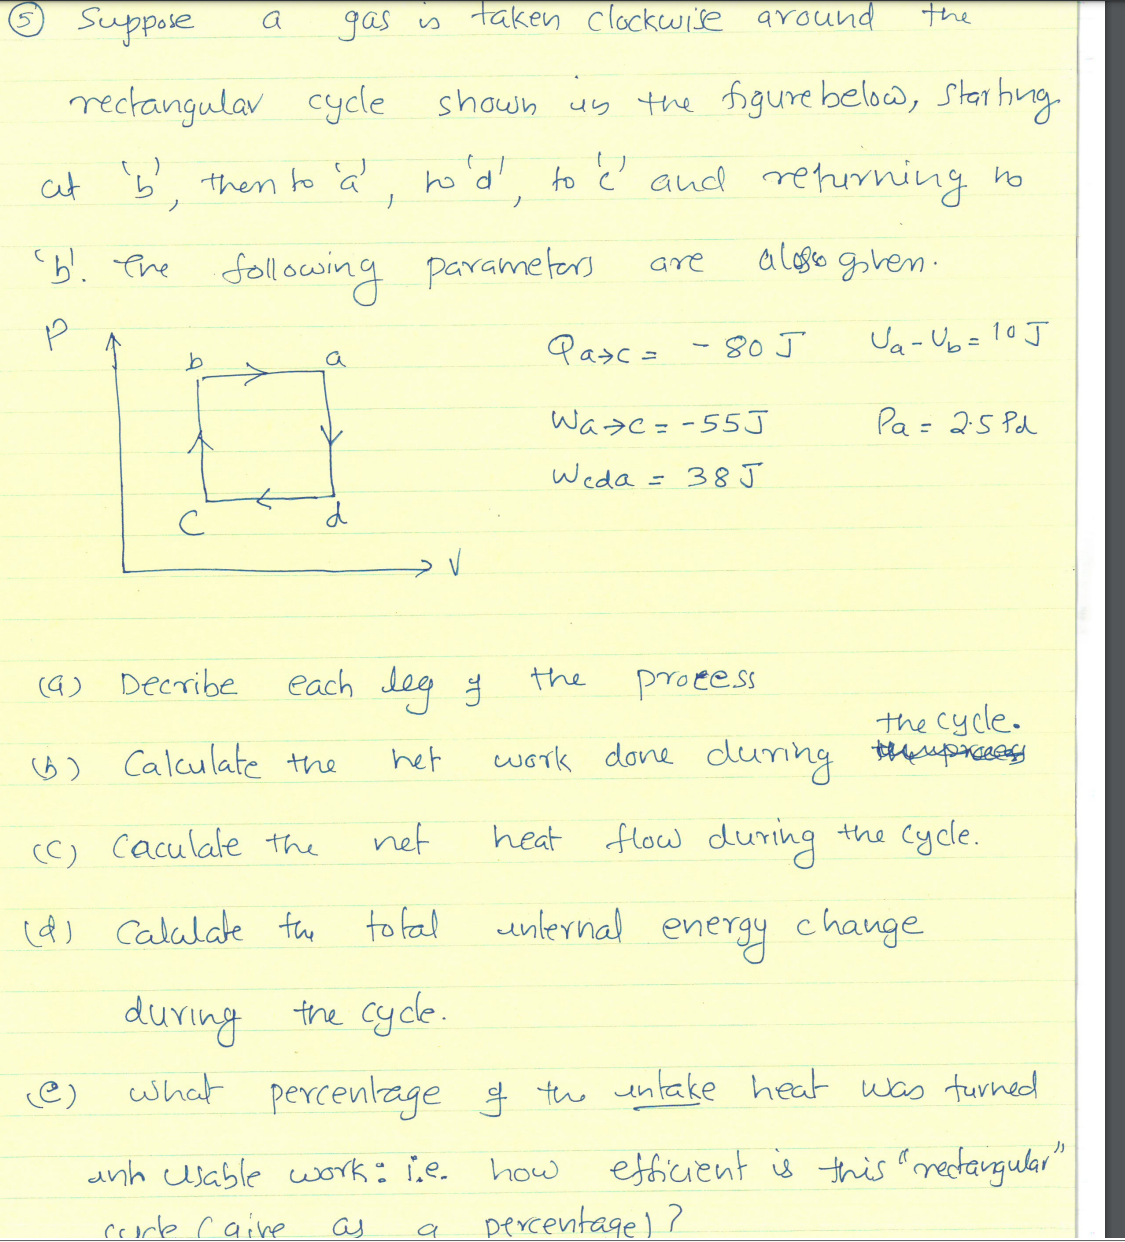 ⑤ Suppose a gas is taken clockwise around the
rectangular cycle shown in the figure below, starting
at 'b', then to 'a', to 'd', to 'c' and returning to
'b'. The following parameters are also given.
P
b a
c d
V
Qa→c = - 80 J Ua - Ub = 10 J
Wa→c = -55J Pa = 2.5 Pd
Wcda = 38 J
(a) Decribe each leg of the process
the cycle.
(b) Calculate the net work done during
(c) Caculate the net heat flow during the cycle.
(d) Calculate the total internal energy change
during the cycle.
(e) What percentage of the intake heat was turned
into usable work: i.e. how efficient is this "rectangular"
cycle (give as a percentage)?